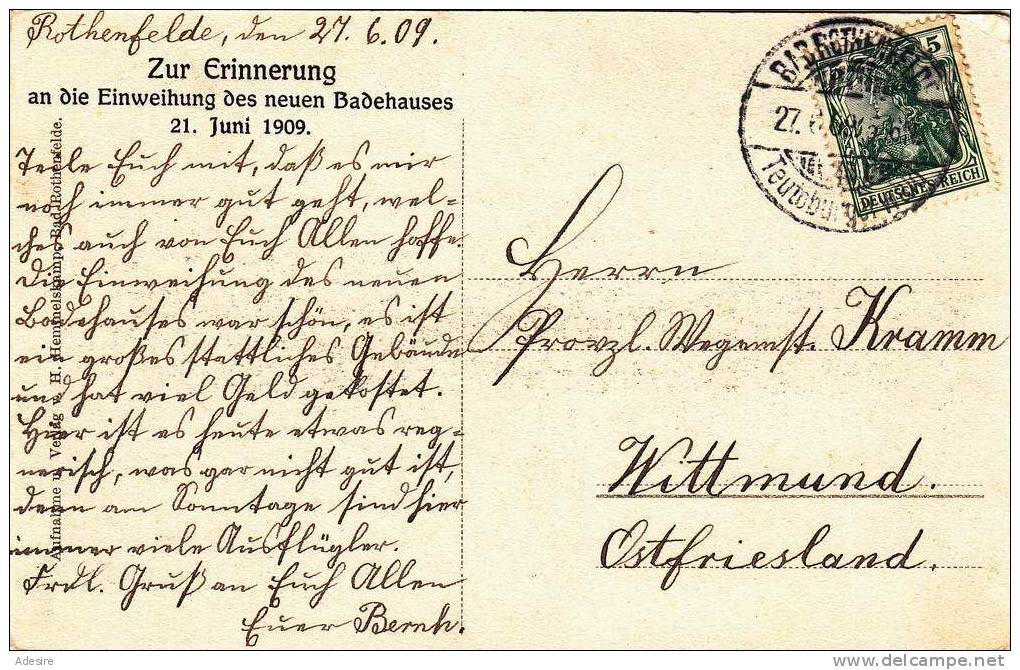 Rothenfelde, den 27. 6. 09.
Zur Erinnerung
an die Einweihung des neuen Badehauses
21. Juni 1909.
Teile Euch mit, daß es mir
noch immer gut geht, wel-
ches auch von Euch Allen hoffe.
Die Einweihung des neuen
Badehauses war schön, es ist
ein großes stattliches Gebäude
und hat viel Geld gekostet.
Hier ist es heute etwas reg-
nerisch, was gar nicht gut ist,
denn am Sonntage sind hier
immer viele Ausflügler.
Frdl. Gruß an Euch Allen
Euer Bernh.
Aufnahme u. Verlag v. H. Himmelskamp, Bad Rothenfelde.
BAD ROTHENFELDE
27. 6. 09
Teutoburg
5
DEUTSCHES REICH
Herrn
Provzl. Wegemst. Kramm
Wittmund.
Ostfriesland.
Adesire
www.delcampe.net